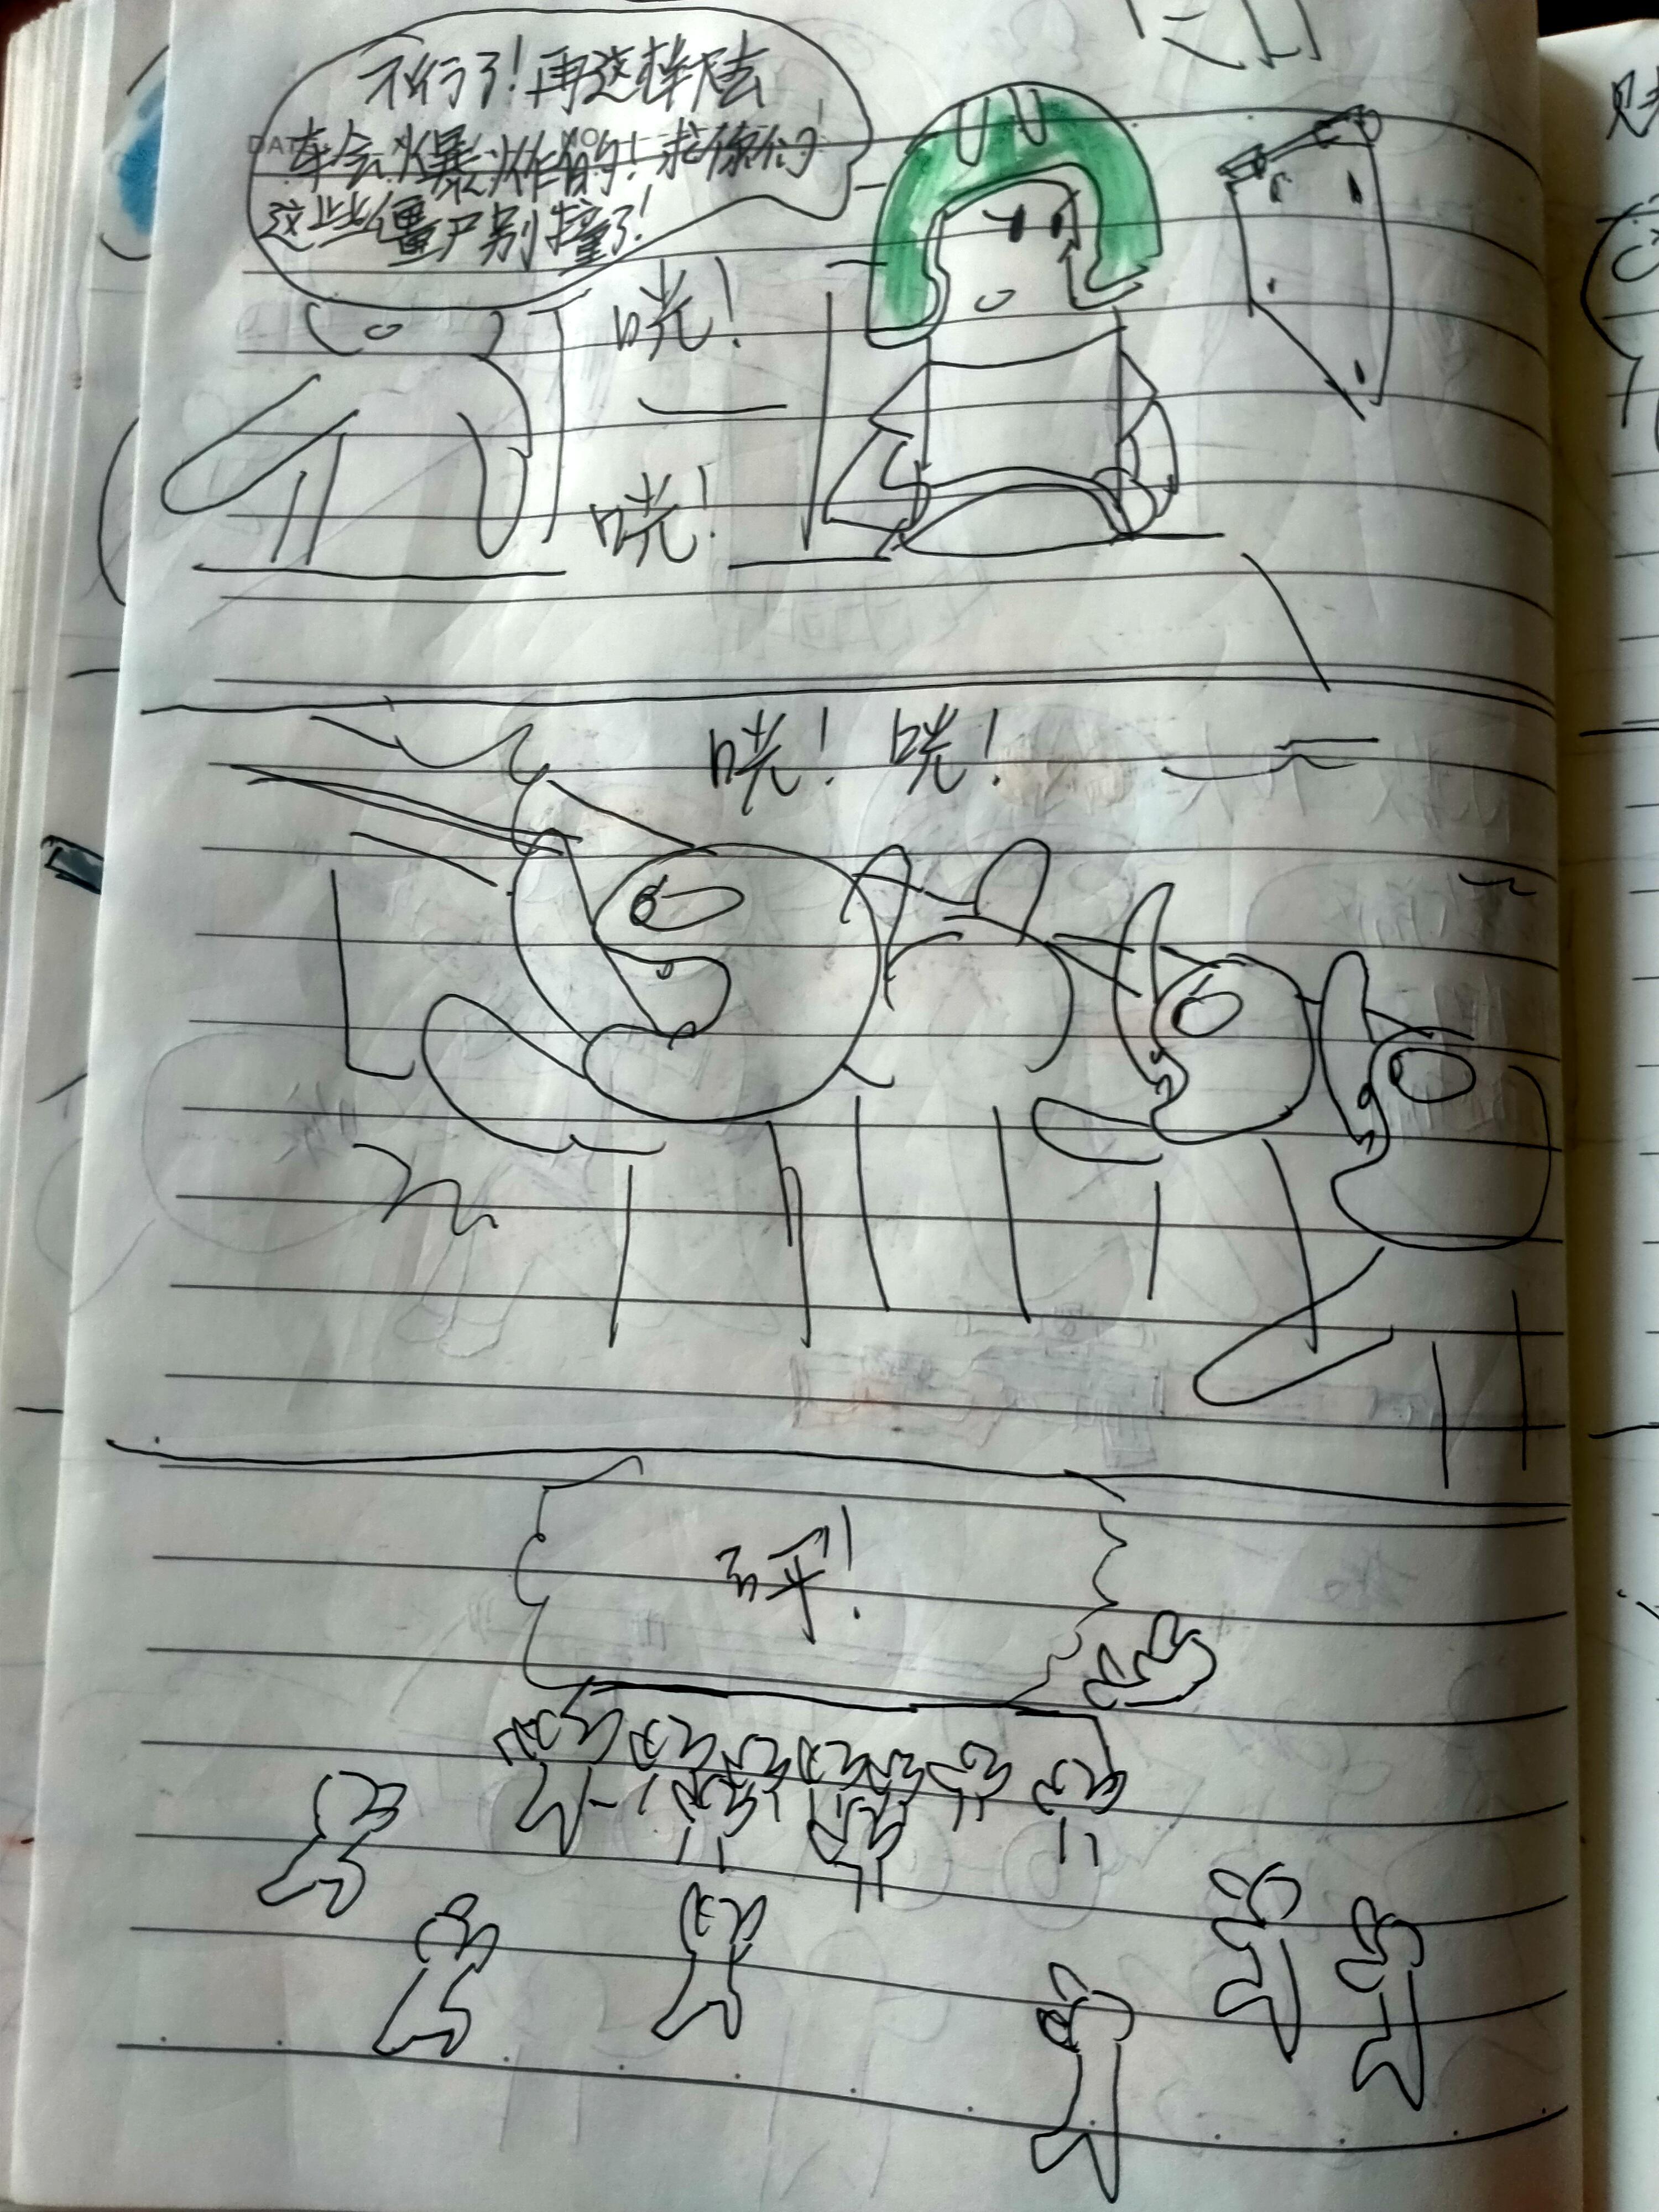 不行了！再这样下去
车会爆炸的！求你们
这些僵尸别撞了！
DATE NO
咣！
咣！
咣！咣！
砰！